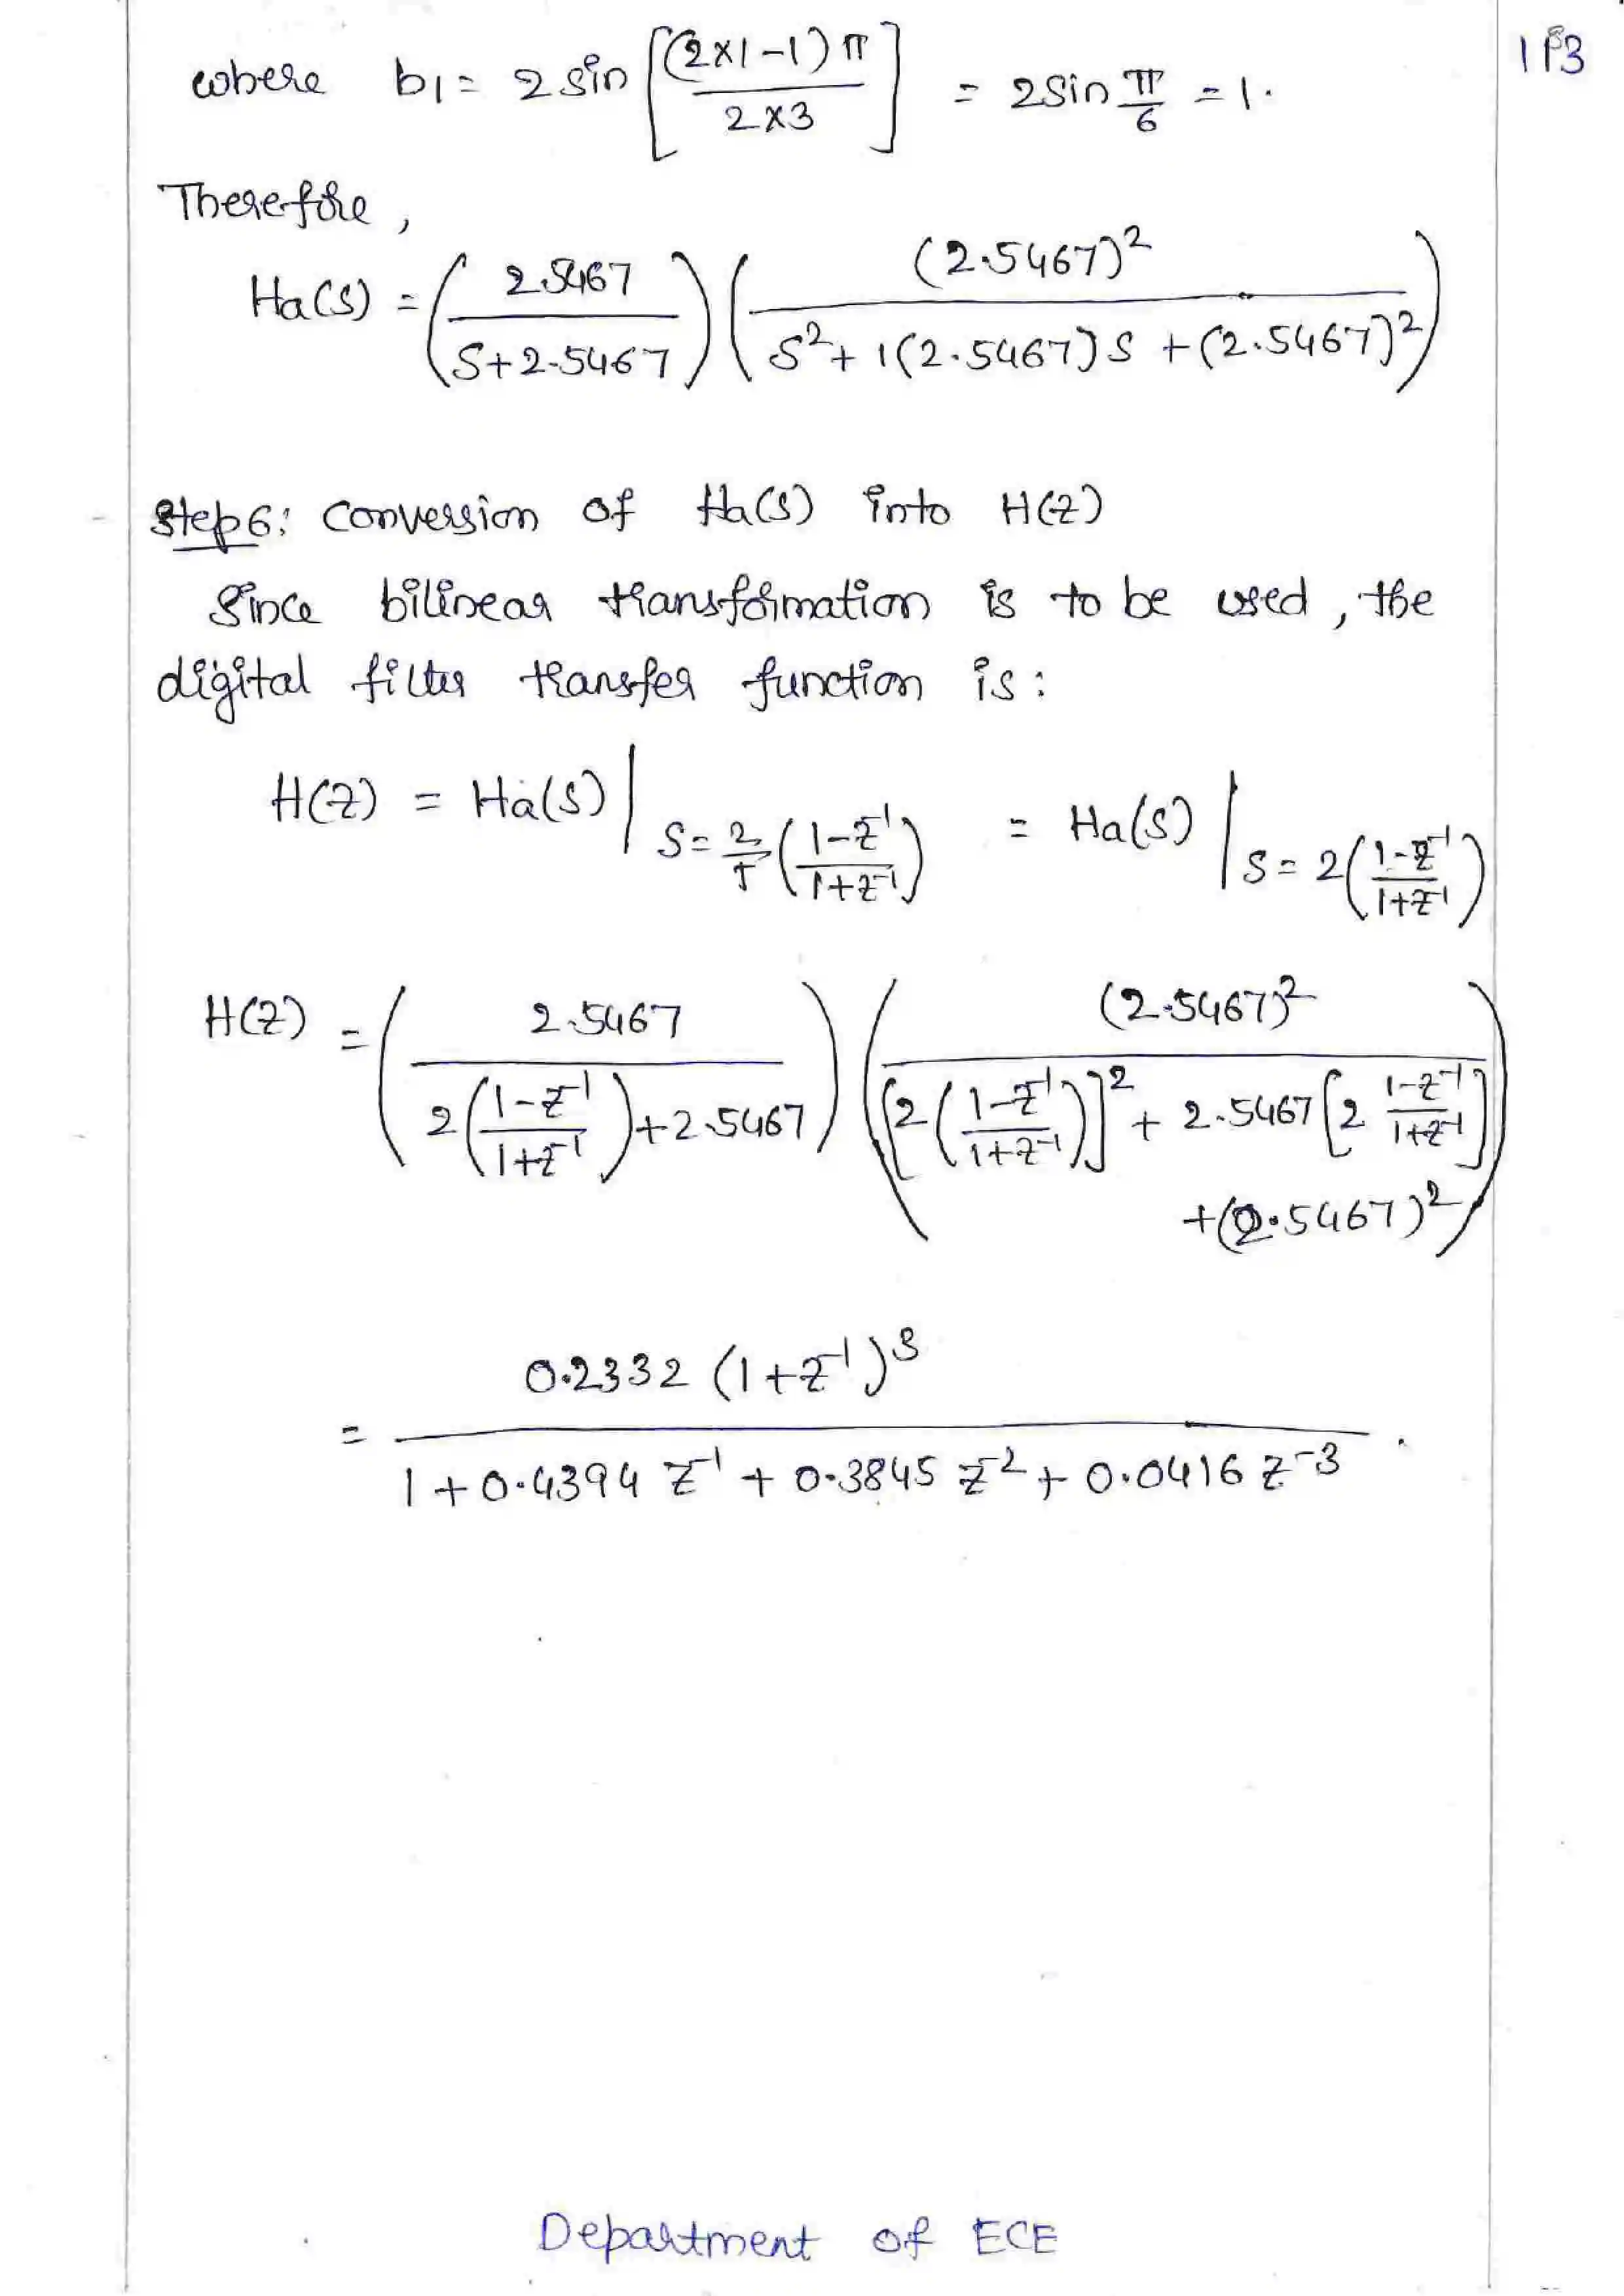 1P3
where b1 = 2 sin [(2×1-1)π / 2×3] = 2 sin π/6 = 1.
Therefore,
Ha(s) = (2.5467 / s+2.5467) ((2.5467)² / s²+1(2.5467)s+(2.5467)²)
Step6: Conversion of Ha(s) into H(z)
Since bilinear transformation is to be used, the
digital filter transfer function is:
H(z) = Ha(s) | s=2/T (1-z⁻¹ / 1+z⁻¹) = Ha(s) | s=2 (1-z⁻¹ / 1+z⁻¹)
H(z) = (2.5467 / 2(1-z⁻¹ / 1+z⁻¹)+2.5467) ((2.5467)² / [2(1-z⁻¹ / 1+z⁻¹)]²+2.5467[2 1-z⁻¹ / 1+z⁻¹]
+(2.5467)²)
= 0.2332 (1+z⁻¹)³ / 1+0.4394 z⁻¹+0.3845 z⁻²+0.0416 z⁻³.
Department of ECE